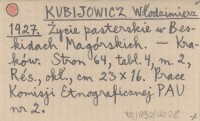 KUBIJOWICZ Włodzimierz
1927. Życie pasterskie w Bes-
kidach Magórskich. — Kra-
ków. Stron 64, tabl. 4, m. 2,
Rés., okł., cm 23 × 16. Prace
Komisji Etnograficznej PAU
nr 2.